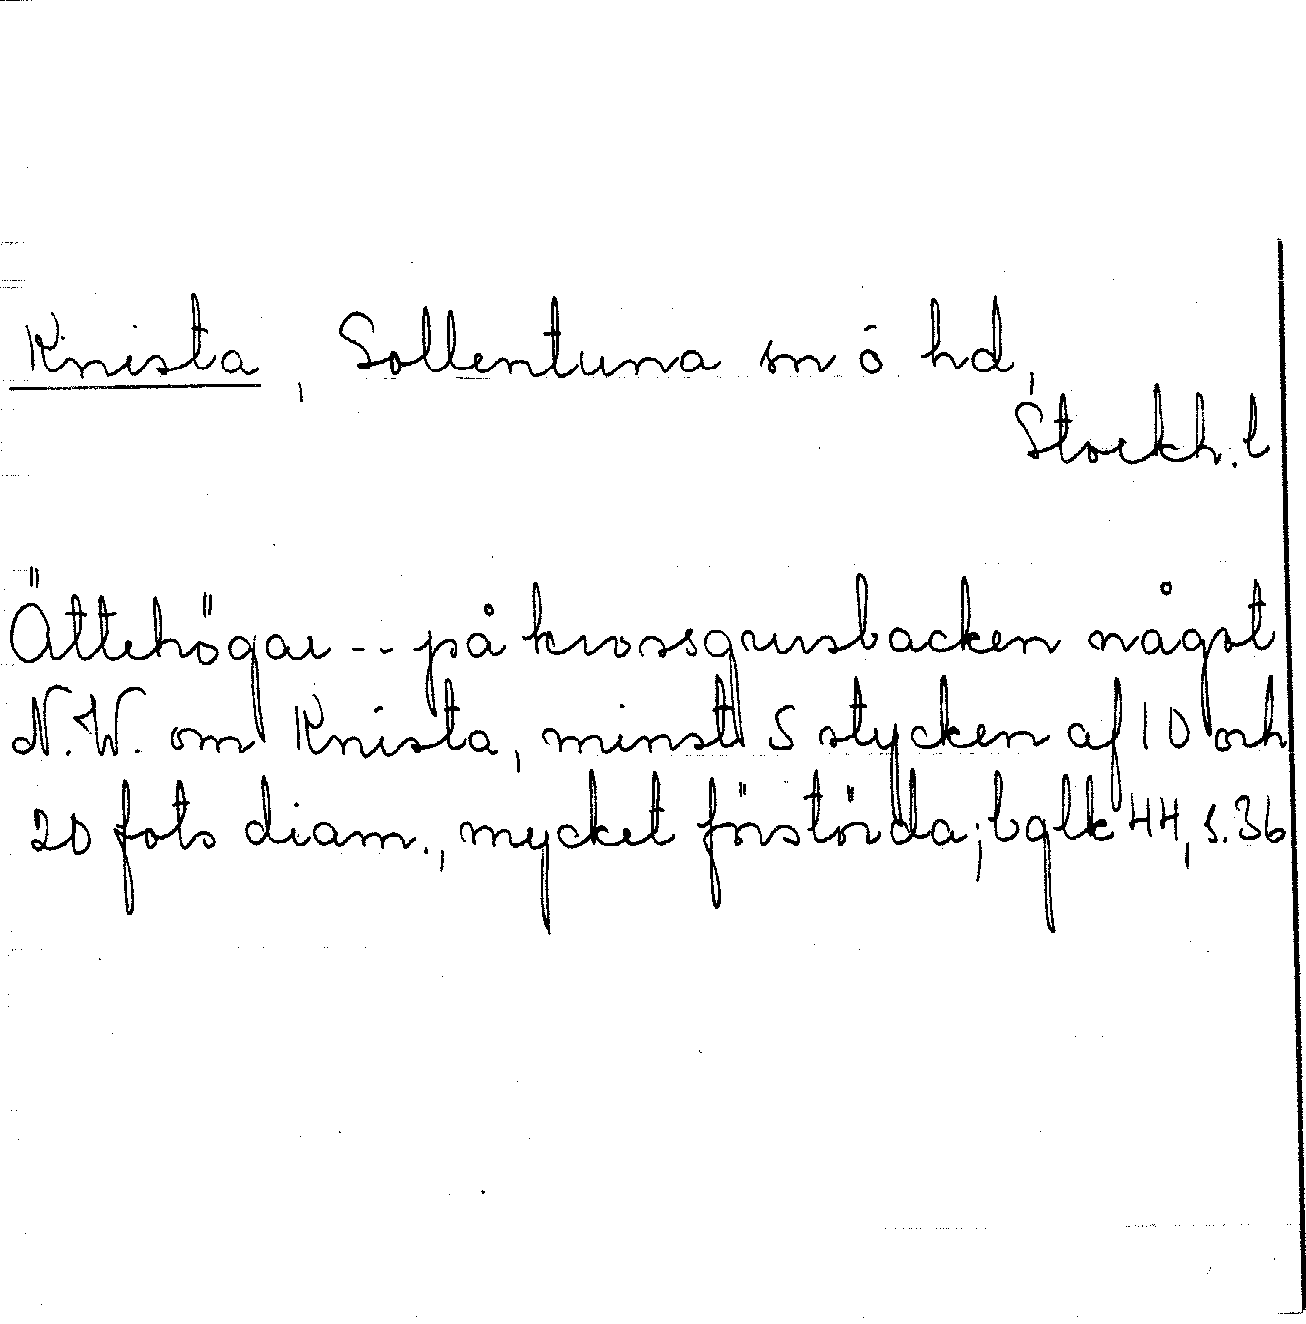 Knista, Sollentuna sn o hd,
Stockh. l
Ättehögar -- på krossgrusbacken något
N.W. om Knista, minst 5 stycken af 10 och
20 fots diam., mycket förstörda; bglk 44, s. 36